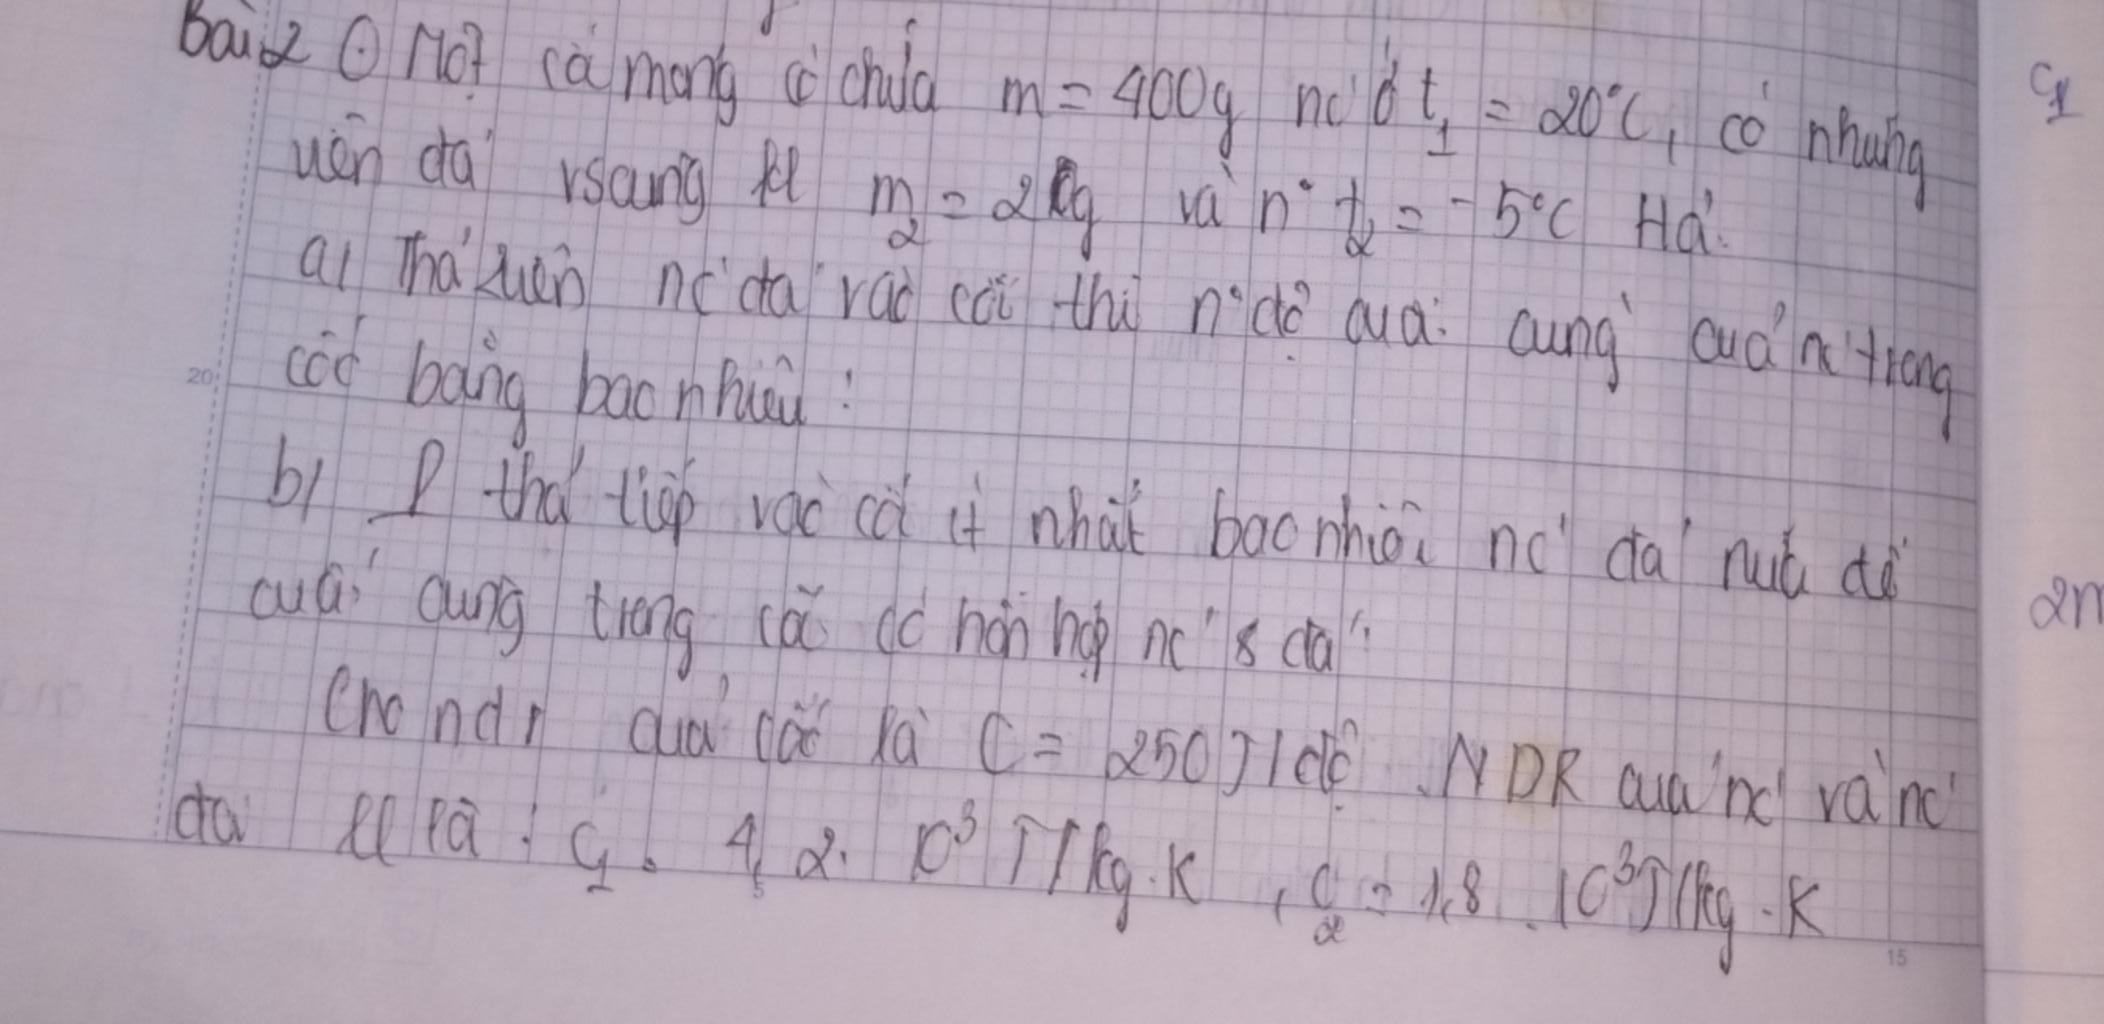 Bài 2 ⊙ Một cả mỏng có chứa m = 400g nc ở t₁ = 20°C, có nhưng
viên đá kl m₂ = 20g và n° t₂ = -5°C Hả.
a/ Thả 2 viên nc đá vào cốc thì n° độ của cùng của nc trong
cốc bằng bao nhiêu:
b/ P thả tiếp vào cố ít nhất bao nhiêu nc đá nữa để
cuối cùng trong cố có hỗn hợp nc & đá?
Cho ndr của cốc là C = 250J/độ. NDR của nc và nc
đá ll là : c₁ = 4,2. 10³ J/kg.K , c₂ = 1,8 . 10³J/kg.K
c₁
2m
20
15